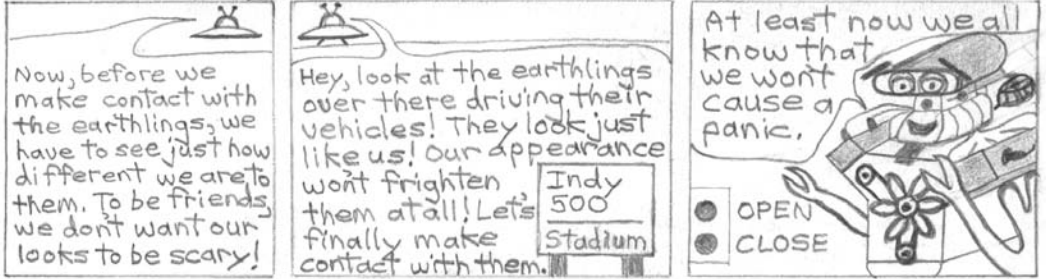 Now, before we
make contact with
the earthlings, we
have to see just how
different we are to
them. To be friends,
we don't want our
looks to be scary!
Hey, look at the earthlings
over there driving their
vehicles! They look just
like us! Our appearance
won't frighten
them at all! Let's
finally make
contact with them.
Indy
500
Stadium
At least now we all
know that
we won't
cause a
panic.
OPEN
CLOSE